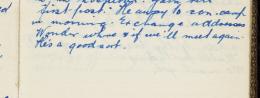 first post. He away to con. camp
in morning. Exchange addresses
Wonder where & if we'll meet again.
He's a good sort.